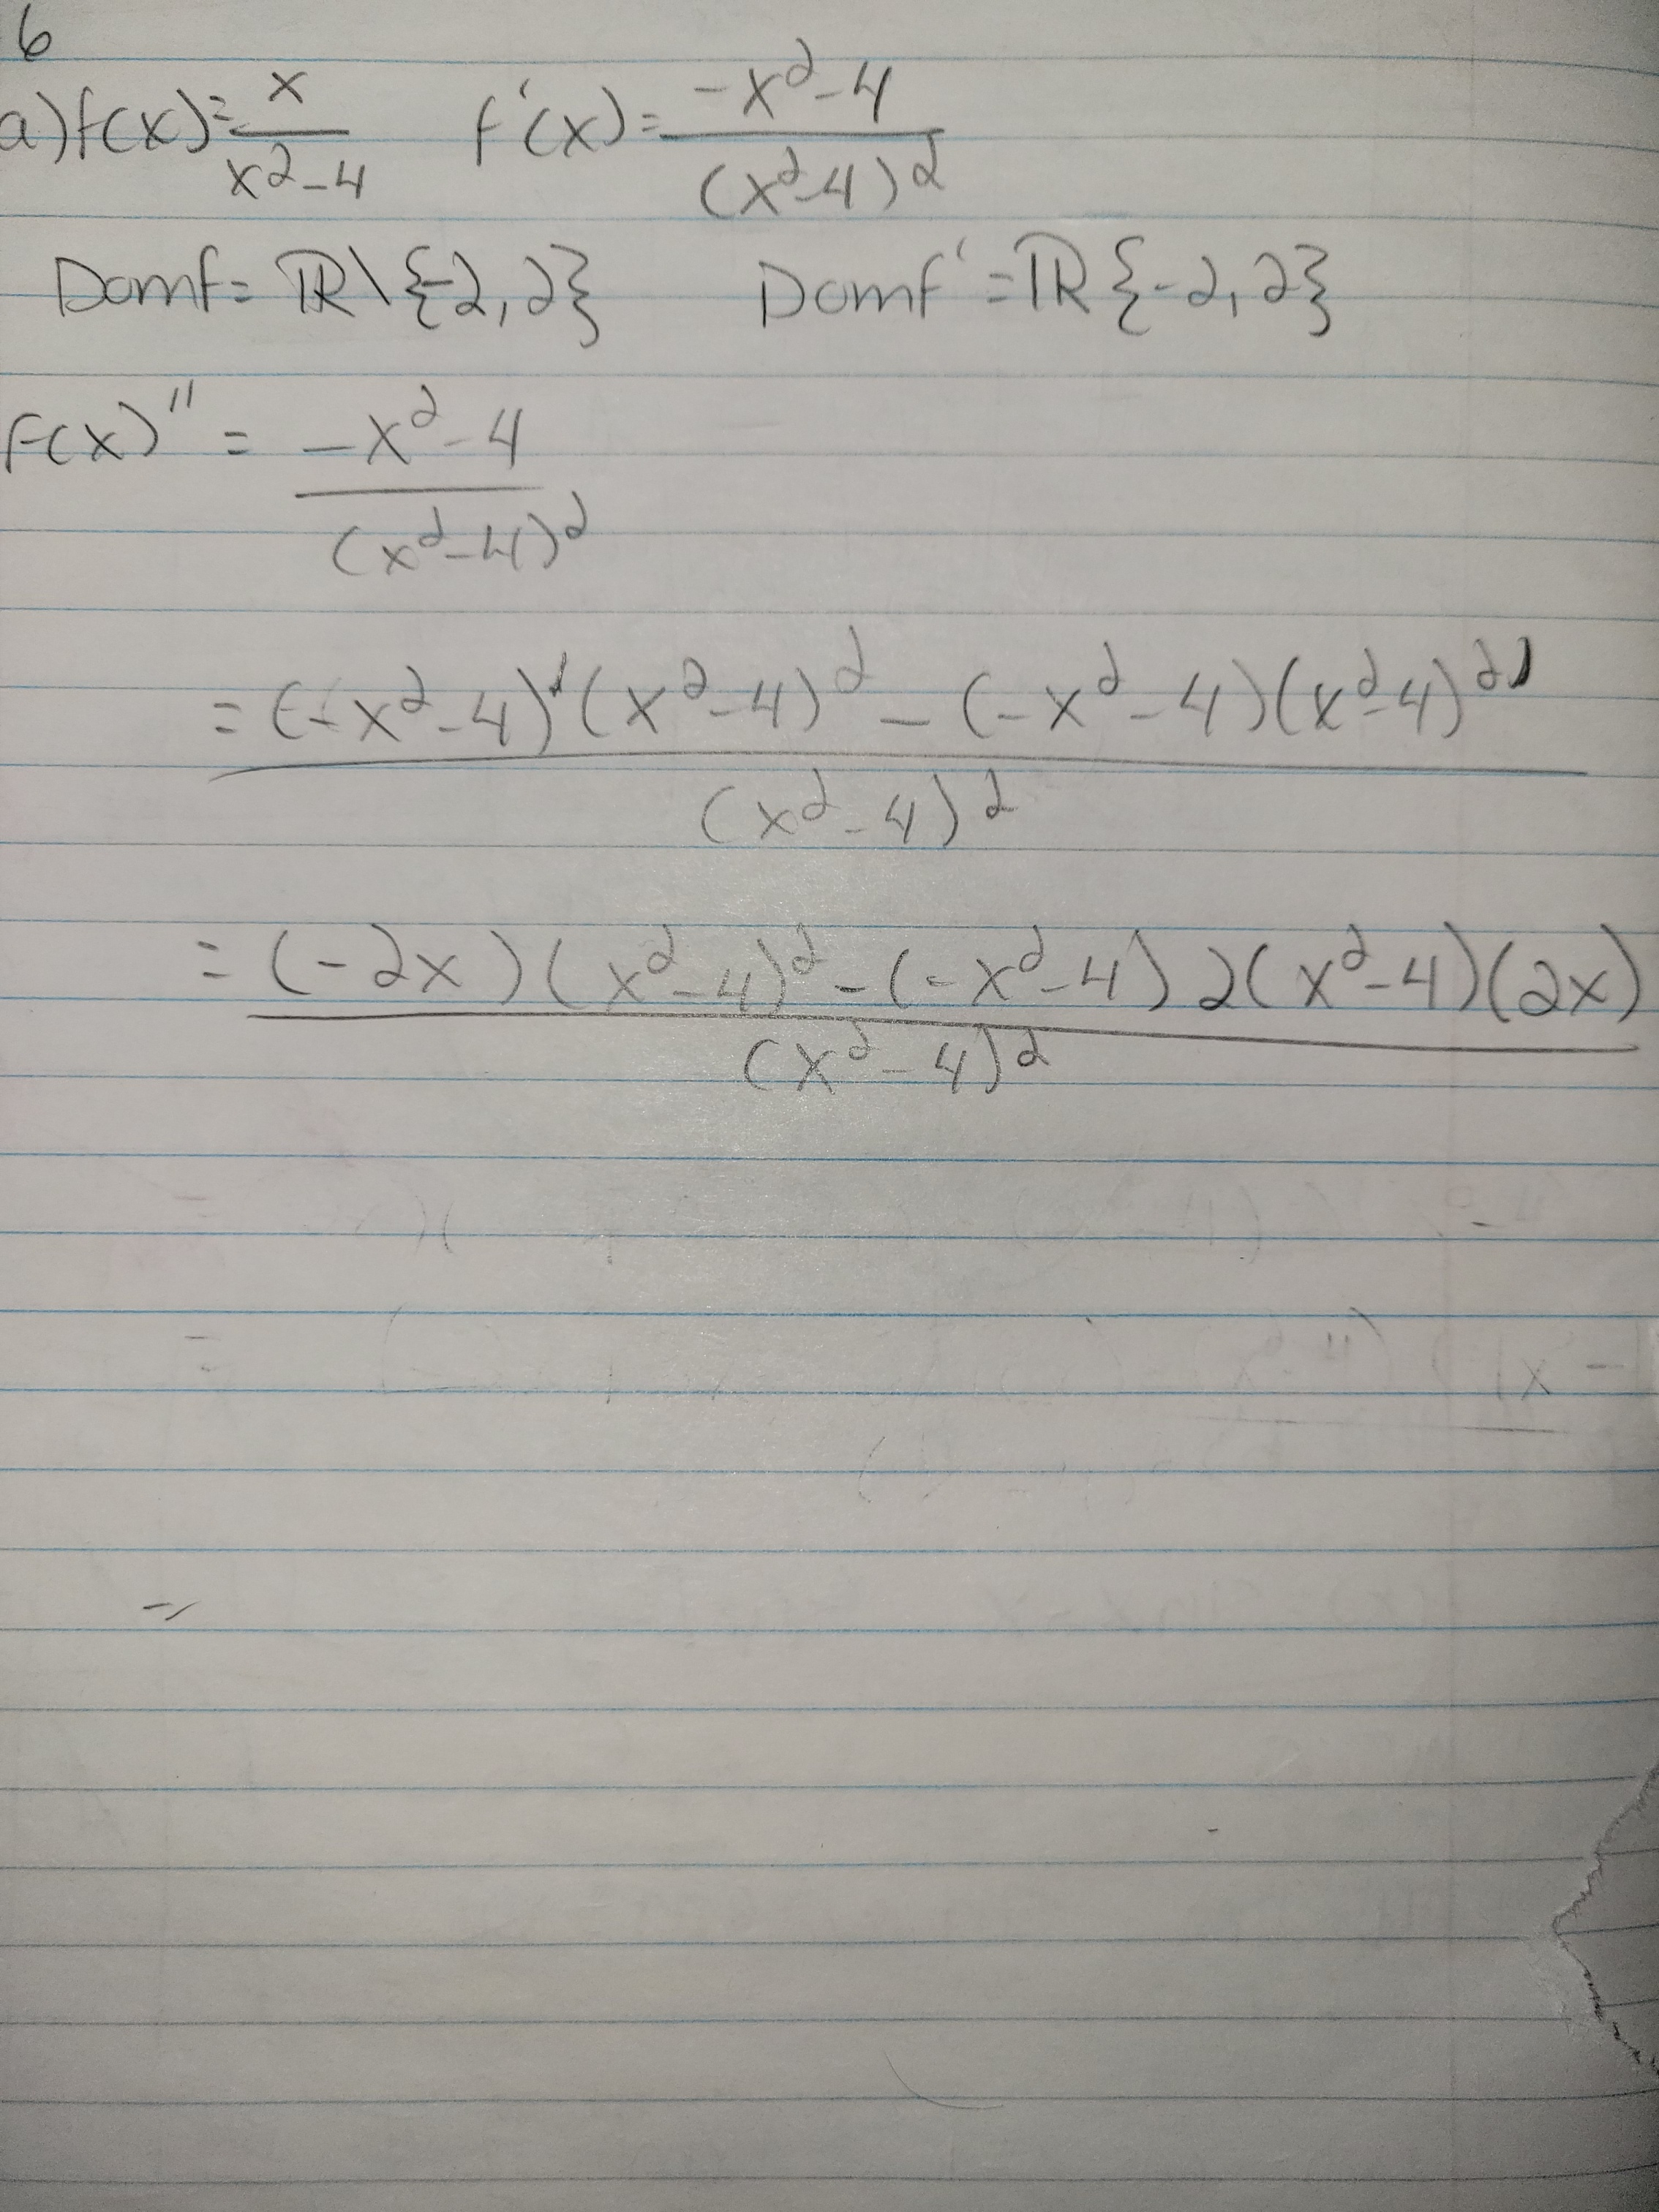 6
a) f(x) = x / (x² - 4)   f'(x) = (-x² - 4) / (x² - 4)²
Domf = ℝ \ {-2, 2}   Domf' = ℝ {-2, 2}
f(x)'' = (-x² - 4) / (x² - 4)²
= ((-x² - 4)' (x² - 4)² - (-x² - 4)(x² - 4)²') / (x² - 4)²
= ((-2x)(x² - 4)² - (-x² - 4) 2(x² - 4)(2x)) / (x² - 4)²
=